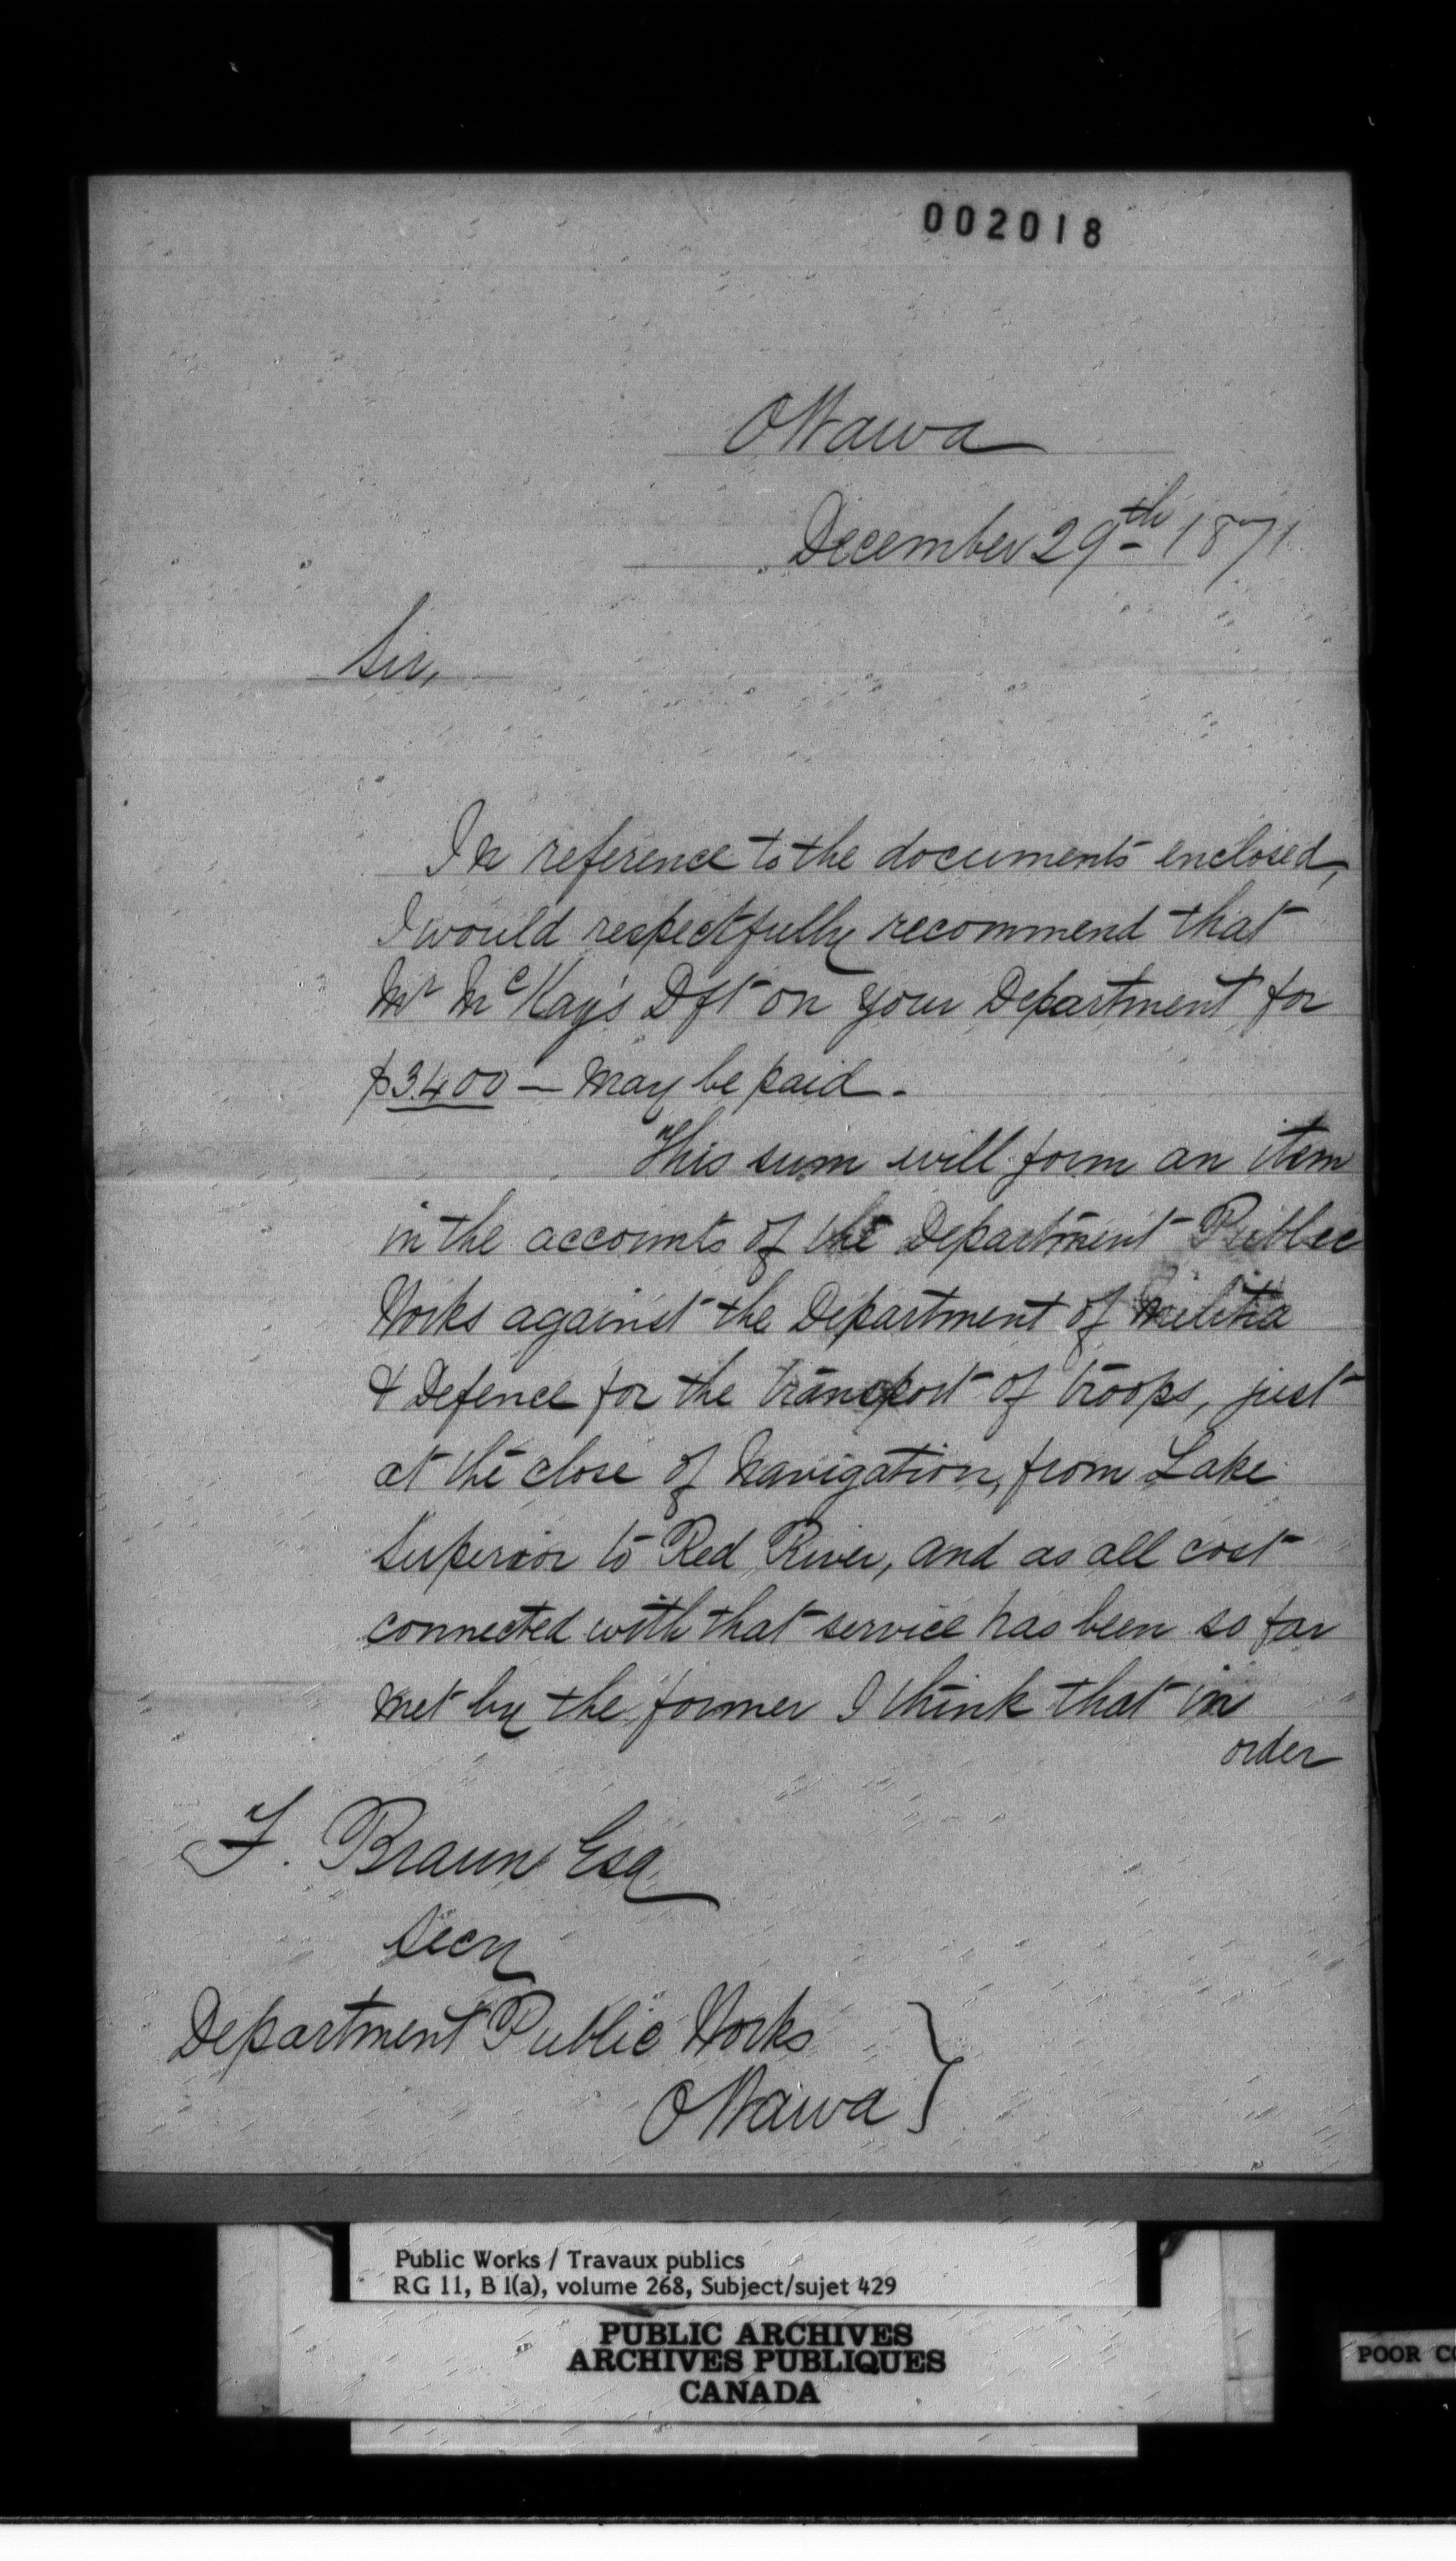 002018
Ottawa
December 29th 1871
Sir,
In reference to the documents enclosed,
I would respectfully recommend that
Mr McKay's Dft on your Department for
$3400 — may be paid.
This sum will form an item
in the accounts of the Department Public
Works against the Department of Militia
& Defence for the transport of troops, just
at the close of Navigation, from Lake
Superior to Red River, and as all cost
connected with that service has been so far
met by the former I think that in
order
F. Braun Esq
Secy
Department Public Works
Ottawa }
Public Works / Travaux publics
RG 11, B 1(a), volume 268, Subject/sujet 429
PUBLIC ARCHIVES
ARCHIVES PUBLIQUES
CANADA
POOR CO